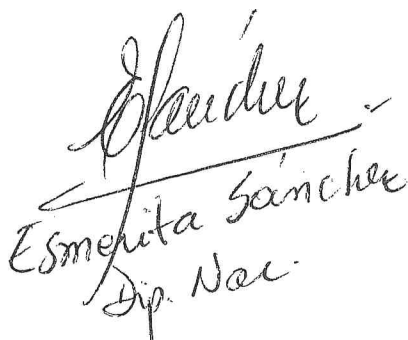 ESánchez
Esmerita Sánchez
Dip. Nac.